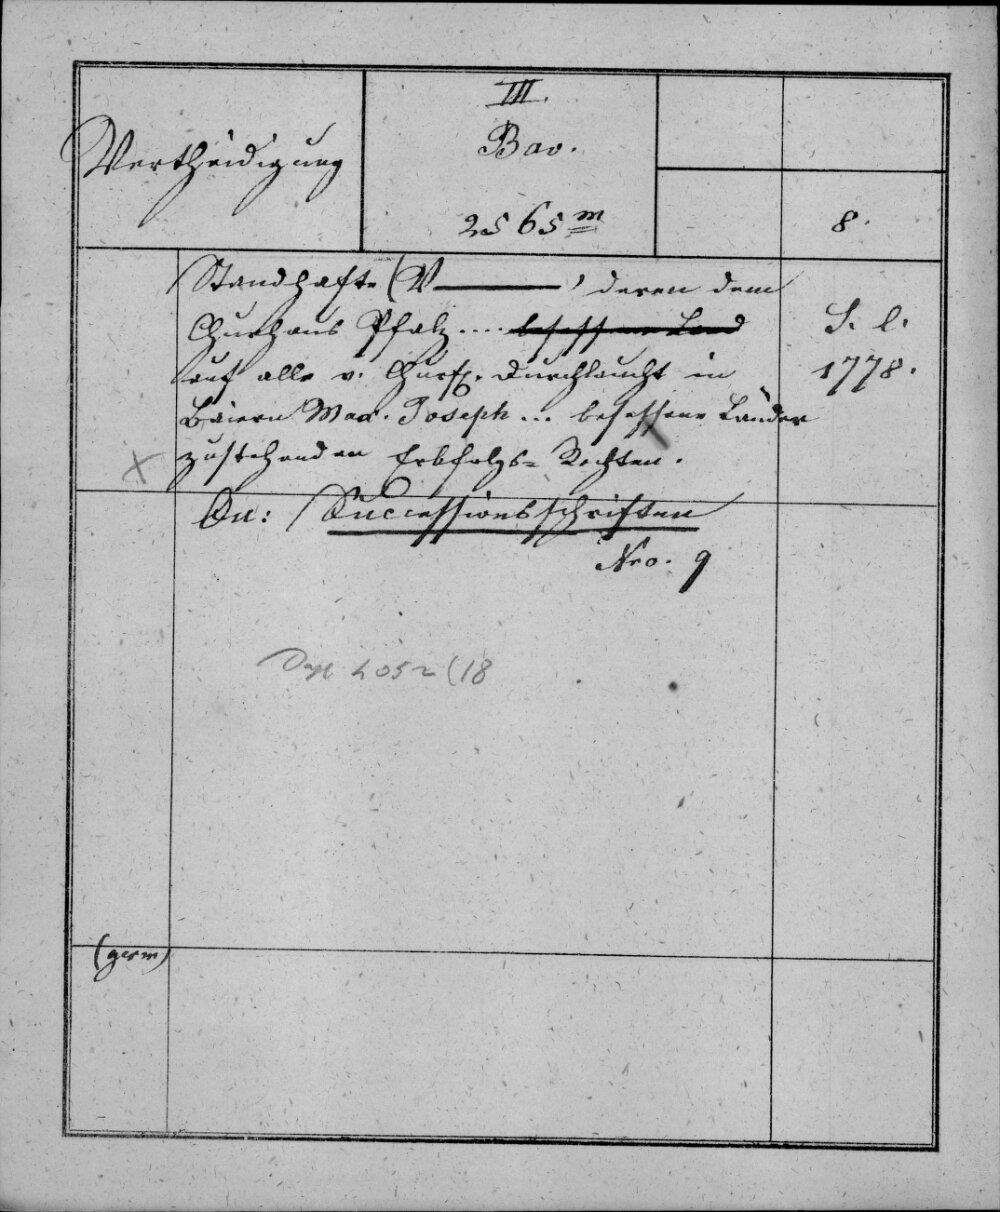 Vertheidigung
III.
Bav.
2565 m
8.
Standhafte (V———) deren dem
Churhaus Pfalz .... besessene Land
auf alle v. Churfl. Durchlaucht in
Baiern Max. Joseph ... besessene Länder
zustehenden Erbfolgs= Rechten.
S. l.
1778.
An: Successionsschriften
Nro. 9
4052 (18
(germ)